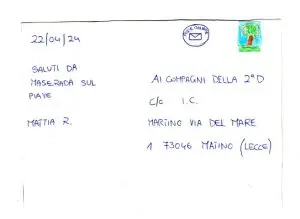 22/04/24
SALUTI DA
MASERADA SUL
PIAVE
MATTIA Z.
AI COMPAGNI DELLA 2°D
C/O I.C.
MARTINO VIA DEL MARE
1 73046 MATINO (LECCE)